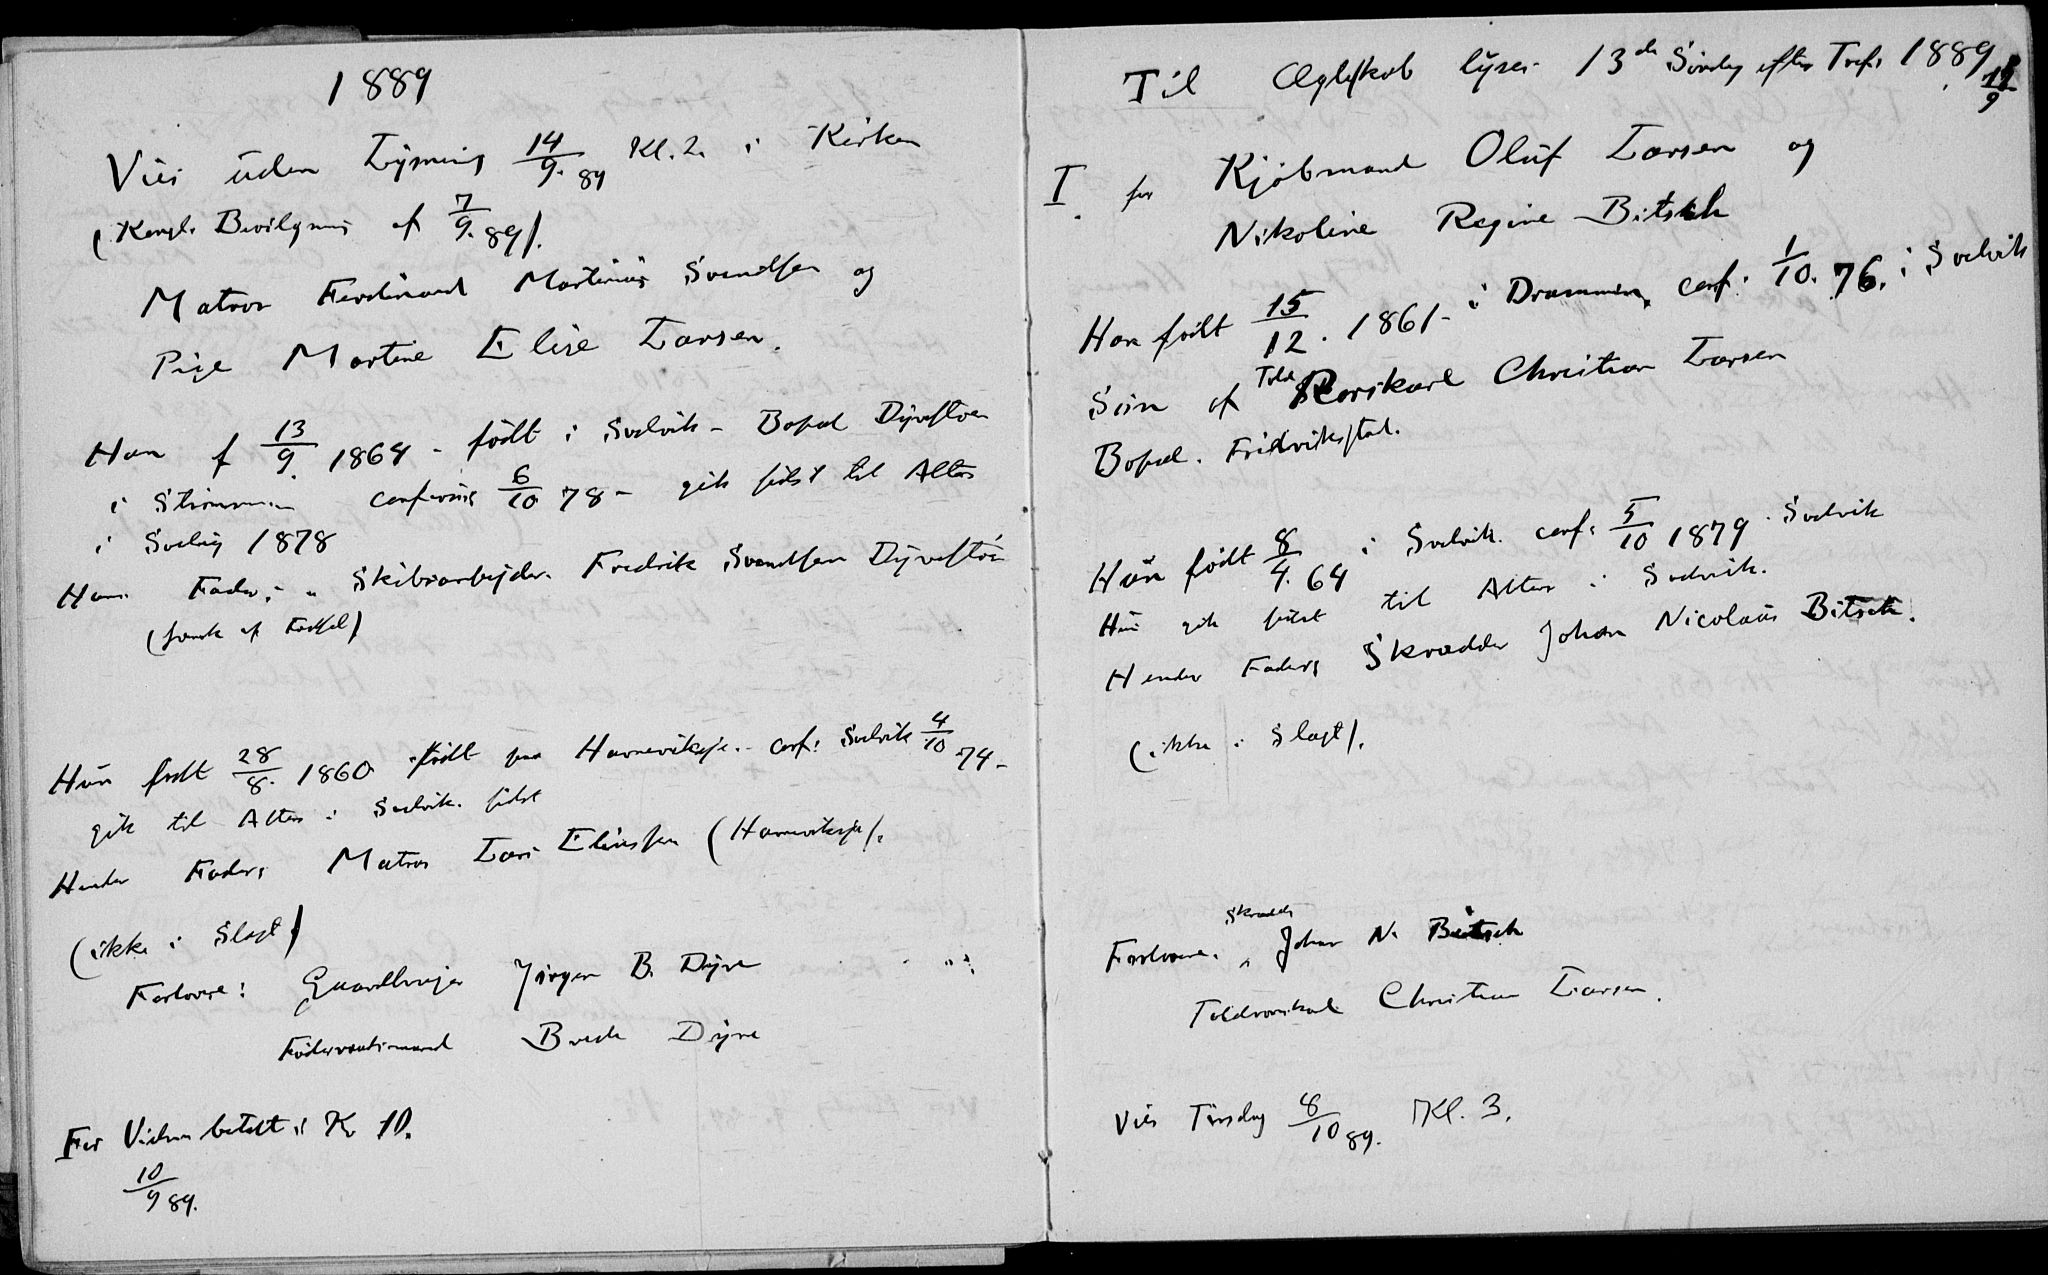 1889
Vies uden Lysning 14/9.89 Kl. 2. i Kirken
(Kongl. Bevilgning af 7/9.89).
Matros Ferdinand Martinius Svendsen og
Pige Martine Elise Larsen.
Han f 13/9. 1864 - født i Svelvik - Bopæl Dyvestøen
i Strømmen confirm 6/10 78 - gik sidst til Alters
i Svelvig 1878
Hans Fader: Skibsarbejder Fredrik Svendsen Dyvestøen
(svensk af Fødsel)
Hun født 28/8. 1860 født paa Havneviksje. - conf: Svelvik 4/10 74 -
gik til Alters i Svelvik. sidst
Hendes Fader: Matros Lars Eliassen (Havneviksje).
(ikke i Slægt)
Forlovere: Gaardbruger Jørgen B. Dyve
Føderaadsmand Brede Dyve
For Vielsen betalt Kr 10.
10/9 89.
Til Ægteskab lyses 13de Søndag efter Tref. 1889 /9
I. for Kjøbmand Oluf Larsen og
Nikoline Regine Bitsch
Han født 15/12. 1861 - i Drammen, conf. 1/10. 76. i Svelvik
Søn af Told Rorskarl Christian Larsen
Bopæl. Fridrikstad.
Hun født 8/4. 64 i Svelvik. conf: 5/10 1879. Svelvik
Hun gik sidst til Alters i Svelvik.
Hendes Fader: Skrædder Johan Nicolaus Bitsch.
(ikke i Slægt).
Forlovere. Skrædder Johan N. Bitsch
Toldrorskarl Christian Larsen.
Vies Tirsdag 8/10 89. Kl. 3.